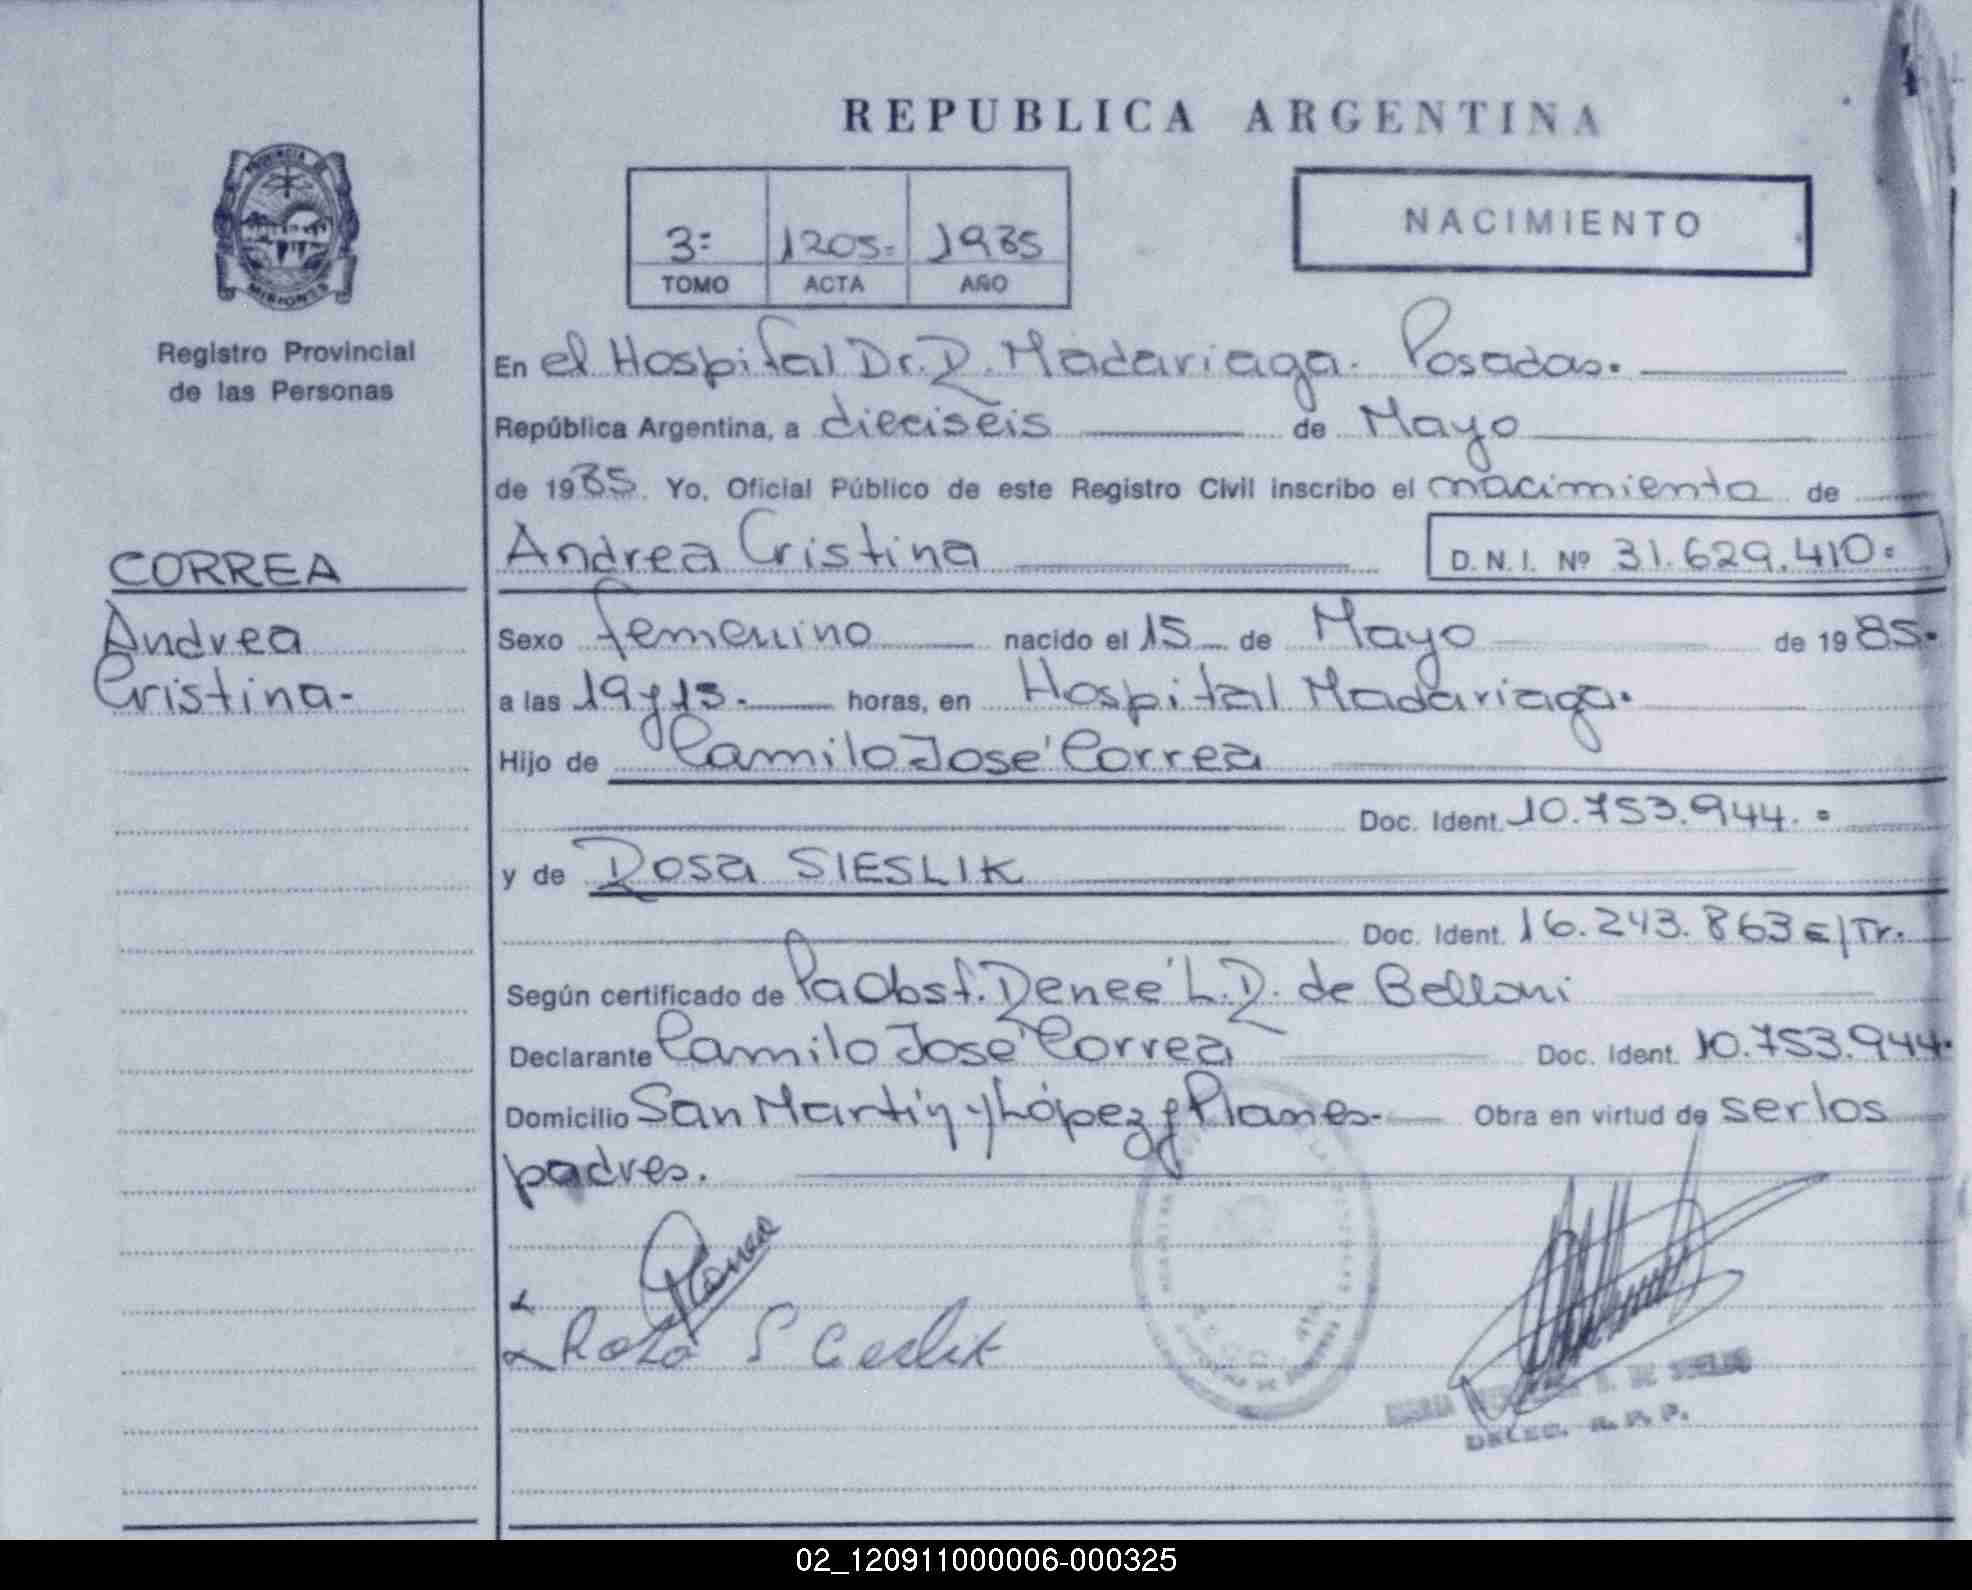 REPUBLICA ARGENTINA
PROVINCIA DE
MISIONES
Registro Provincial
de las Personas
3= 1205= 1985
TOMO ACTA AÑO
NACIMIENTO
En el Hospital Dr. R. Madariaga. Posadas.
República Argentina, a dieciseis de Mayo
de 1985. Yo, Oficial Público de este Registro Civil inscribo el nacimiento de
CORREA
Andrea
Cristina-
Andrea Cristina D. N. I. Nº 31.629.410=
Sexo femenino nacido el 15 de Mayo de 1985.
a las 19 y 15. horas, en Hospital Madariaga.
Hijo de Camilo José Correa
Doc. Ident. 10.753.944.=
y de Rosa SIESLIK
Doc. Ident. 16.243.863 E/Tr.
Según certificado de Pa Obst. Reneé L. R. de Belloni
Declarante Camilo José Correa Doc. Ident. 10.753.944.
Domicilio San Martín y López y Planes.- Obra en virtud de ser los
padres.
Correa
Rosa S Ceslik
DE
DELEG. R. P. P.
02_120911000006-000325